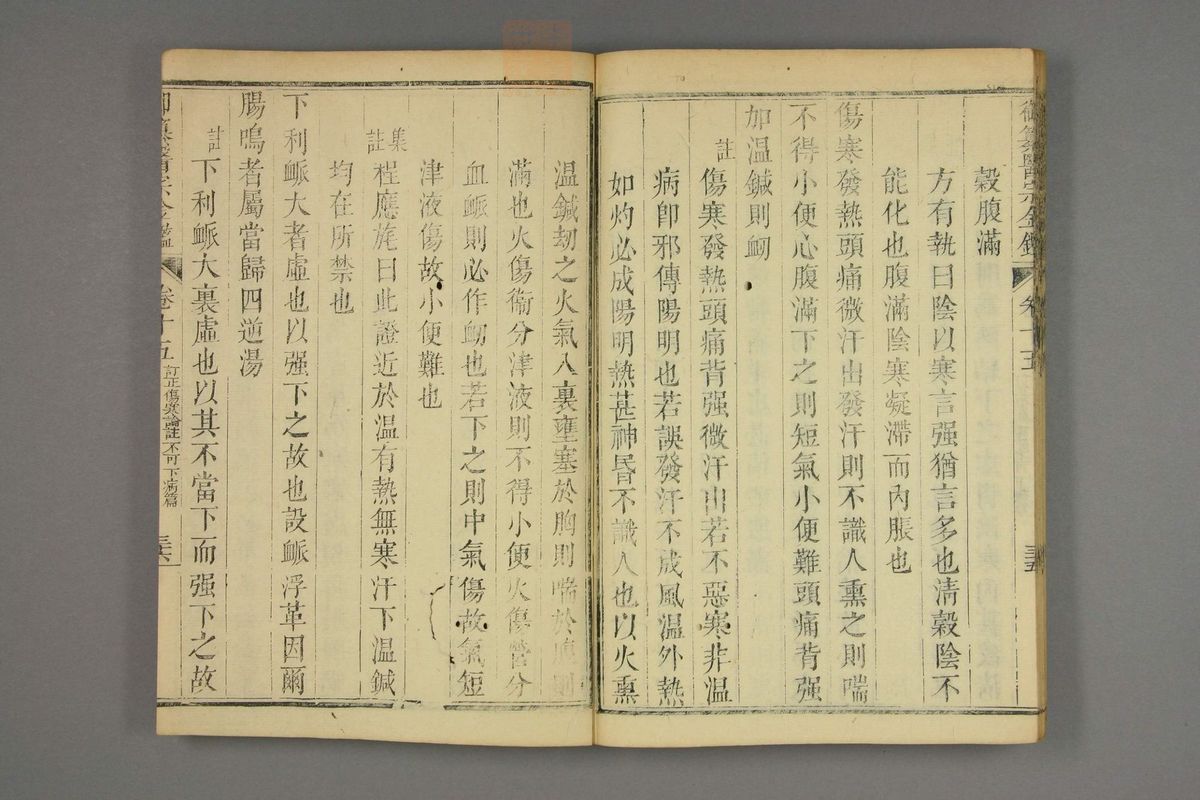 御纂醫宗金鑑 卷十五 三五
穀腹滿
方有執曰陰以寒言强猶言多也清穀陰不
能化也腹滿陰寒凝滯而內脹也
傷寒發熱頭痛微汗出發汗則不識人熏之則喘
不得小便心腹滿下之則短氣小便難頭痛背强
加温鍼則衂
註 傷寒發熱頭痛背强微汗出若不惡寒非温
病卽邪傳陽明也若誤發汗不成風温外熱
如灼必成陽明熱甚神昏不識人也以火熏
温鍼劫之火氣入裏壅塞於胸則喘於
滿也火傷衞分津液則不得小便火傷營分
血脈則必作衂也若下之則中氣傷故氣短
津液傷故小便難也
集註 程應旄曰此證近於温有熱無寒汗下温鍼
均在所禁也
下利脈大者虛也以强下之故也設脈浮革因爾
腸鳴者屬當歸四逆湯
註 下利脈大裏虛也以其不當下而强下之故
卷十五 訂正傷寒論註 不可下病篇 三六